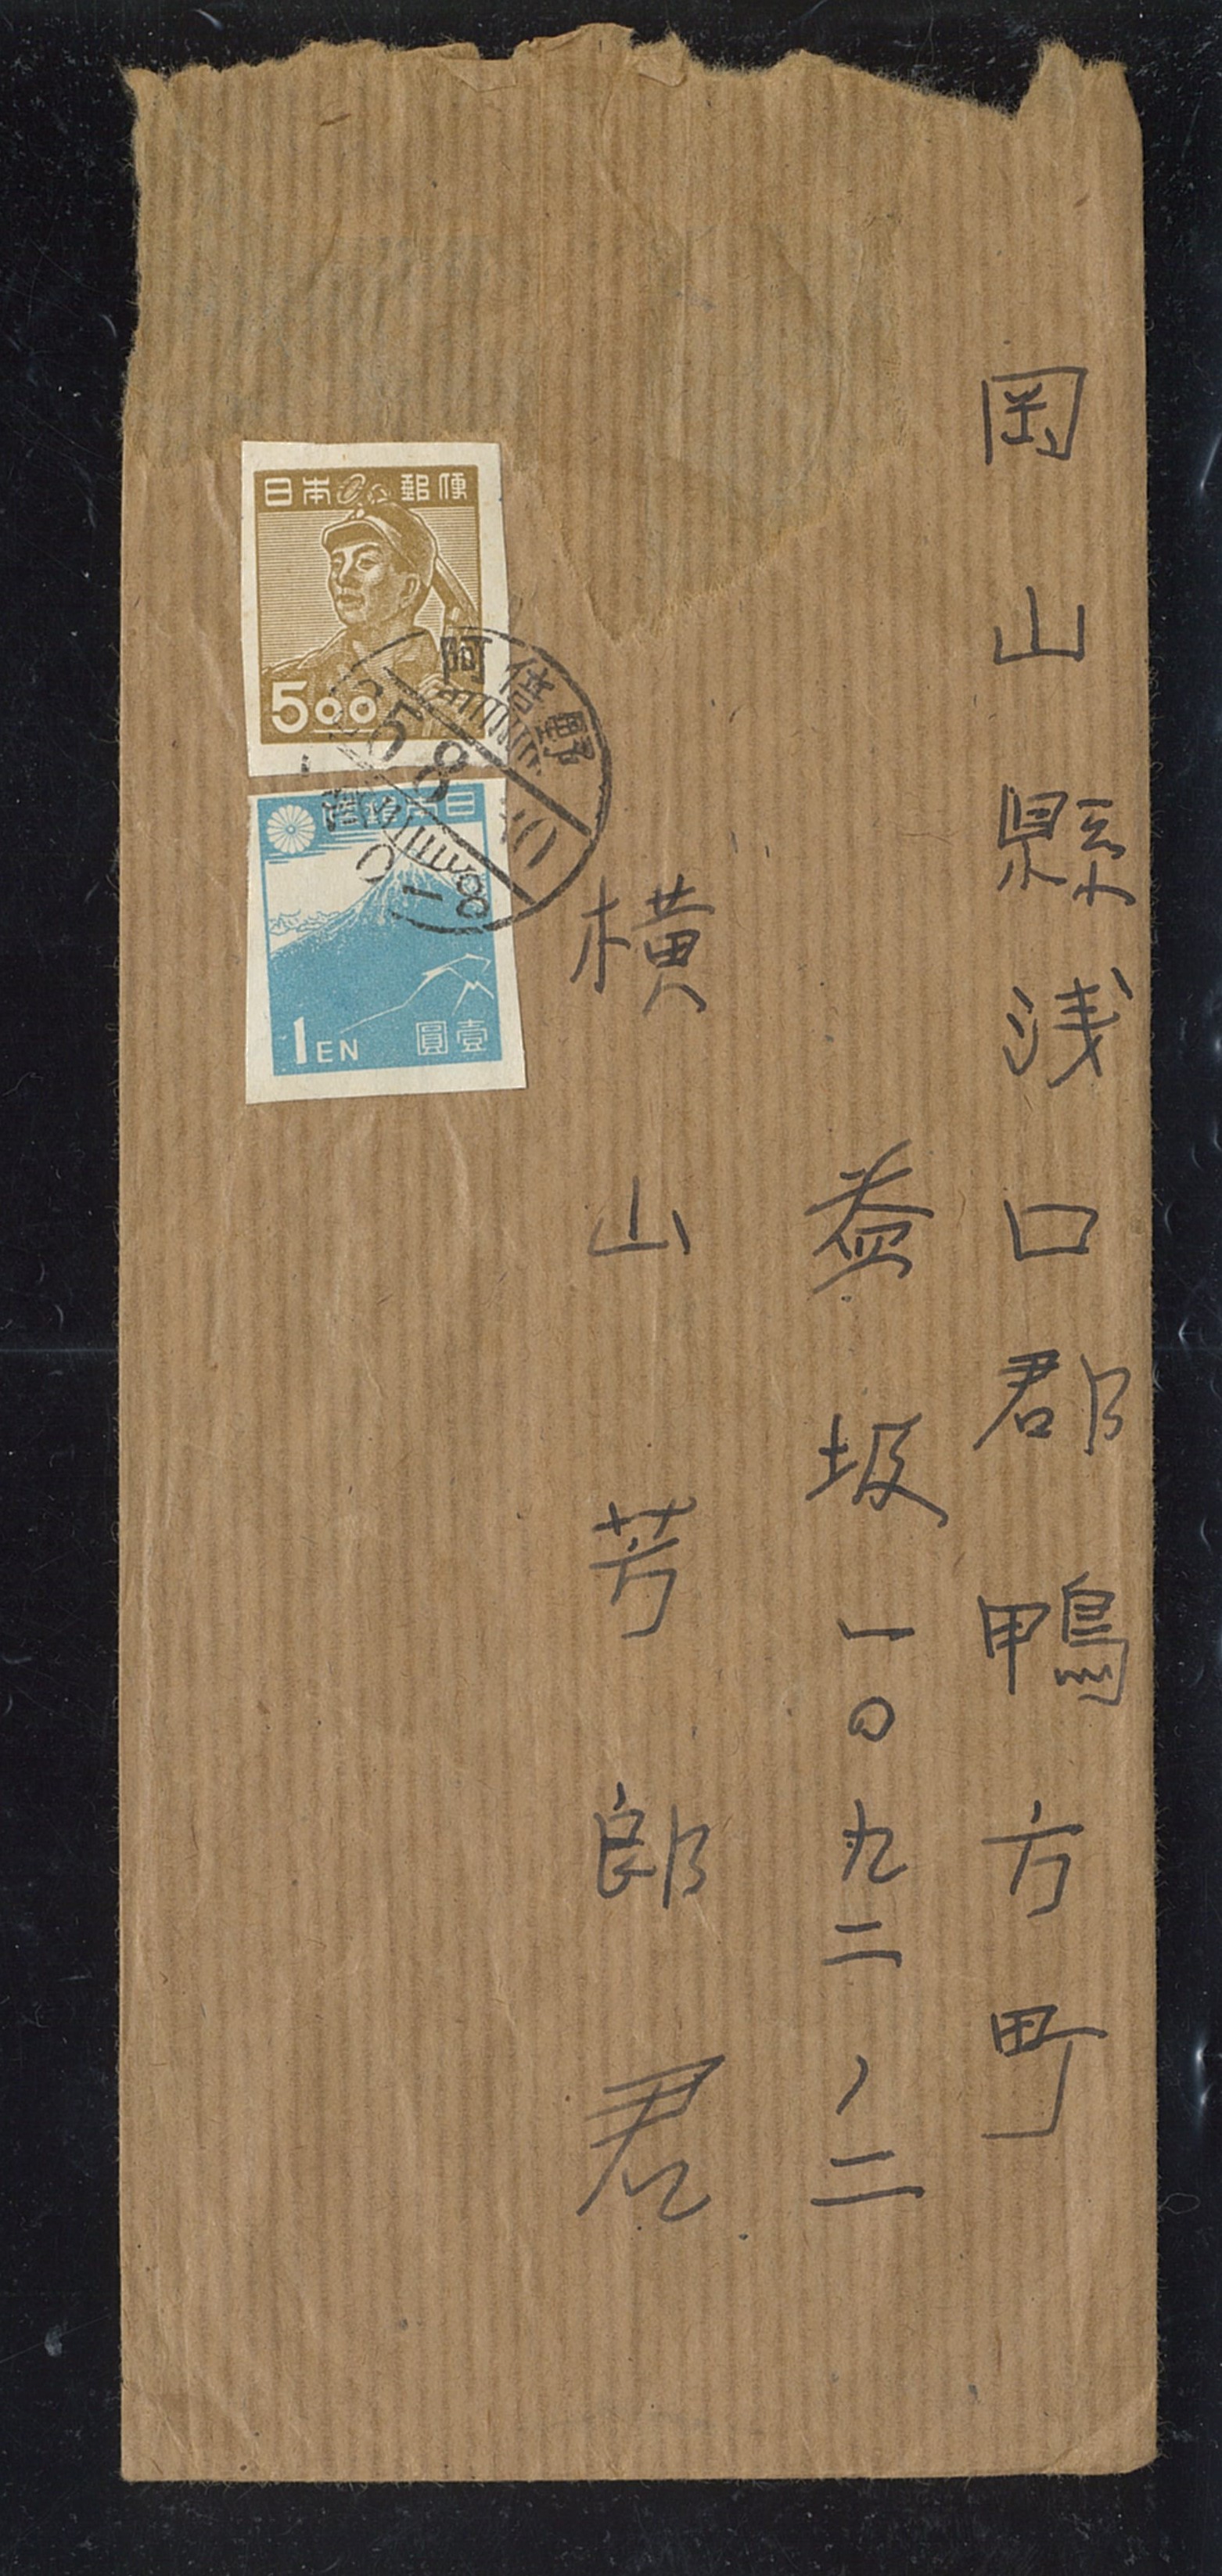 岡山縣浅口郡鴨方町
益坂一〇九二ノ二
横山芳郎君
日本郵便
500
日本郵便
1EN
壹圓
阿倍野